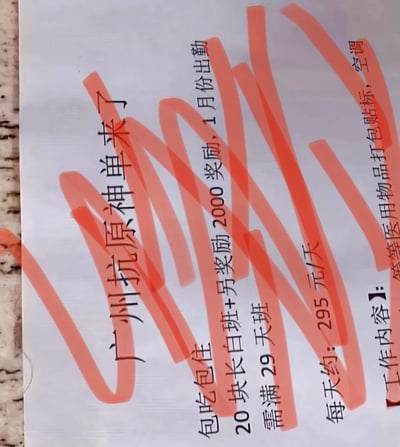 广州抗原神单来了
包吃包住
20 块长白班+另奖励 2000 奖励，1 月份出勤
需满 29 天班
每天约：295 元/天
【工作内容】：
等等医用物品打包贴标，空调